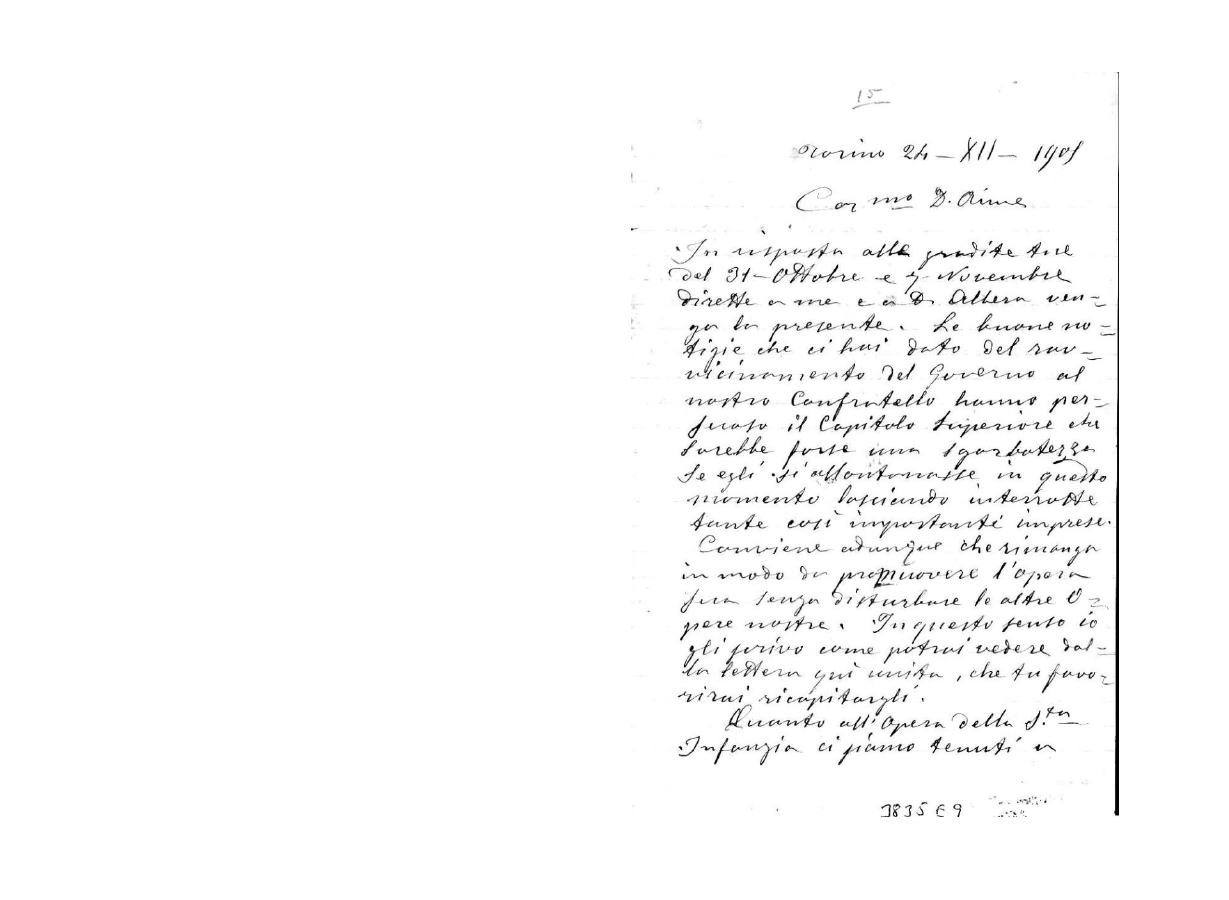 15
Torino 24 - XII - 1905
Car mo D. Aime
In risposta alle gradite tue
del 31 - Ottobre e 7 Novembre
dirette a me e a D. Albera ven-
go la presente. Le buone no=
tizie che ci hai dato del rav-
vicinamento del Governo al
nostro Confratello hanno per-
suaso il Capitolo Superiore che
sarebbe forse una sgarbatezza
se egli si allontanasse in questo
momento lasciando interrotte
tante così importanti imprese.
Conviene adunque che rimanga
in modo da promuovere l'opera
sua senza disturbare le altre O=
pere nostre. In questo senso io
gli scrivo come potrai vedere dal-
la lettera quì unita, che tu favo=
rirai ricapitargli.
Quanto all'Opera della S.ta
Infanzia ci siamo tenuti a
3835 E 9